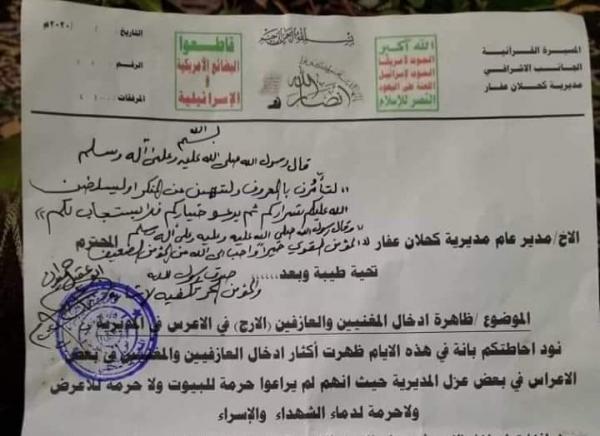 المسيرة القرآنية
الجانب الاشرافي
مديرية كحلان عفار
الله أكبر
الموت لأمريكا
الموت لإسرائيل
اللعنة على اليهود
النصر للإسلام
أنصار الله
قاطعوا
البضائع الأمريكية
و
الإسرائيلية
التاريخ / / ٢٠٢٠م
الرقم
المرفقات
بسم الله
قال رسول الله صلى الله عليه وعلى آله وسلم
لتأمرن بالمعروف ولتنهن عن المنكر او ليسلطن
الله عليكم شراركم ثم يدعو خياركم فلا يستجاب لكم
وقال رسول الله صلى الله عليه وعلى آله وسلم
الاخ/ مدير عام مديرية كحلان عفار
المؤمن القوي خير واحب الى الله من المؤمن الضعيف
المحترم
تحية طيبة وبعد......
صدق رسول الله
الموضوع / ظاهرة ادخال المغنيين والعازفين (الارج) في الاعرس في المديرية
نود احاطتكم بانة في هذه الايام ظهرت أكثار ادخال العازفيين والمغنيين في بعض
الاعراس في بعض عزل المديرية حيث انهم لم يراعوا حرمة للبيوت ولا حرمة للأعرض
ولاحرمة لدماء الشهداء والإسراء